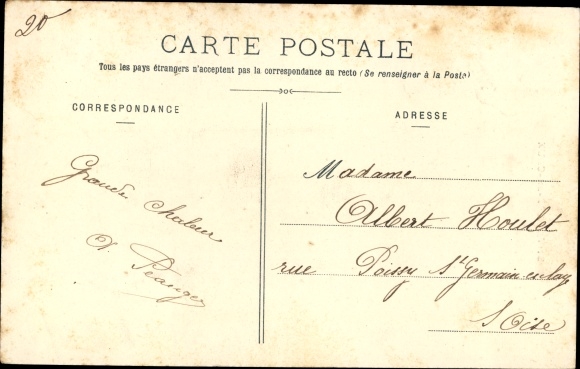 20
CARTE POSTALE
Tous les pays étrangers n'acceptent pas la correspondance au recto (Se renseigner à la Poste)
CORRESPONDANCE
Grande chaleur
ADRESSE
Madame
Albert Houlet
rue Poissy St Germain en Laye
S Oise